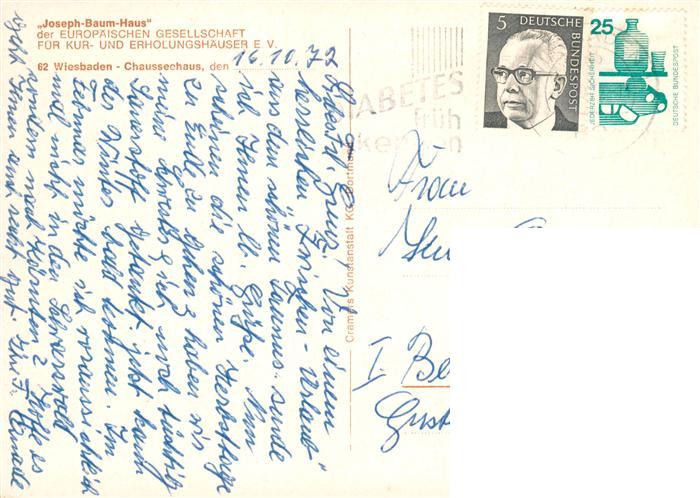 „Joseph-Baum-Haus“
der EUROPÄISCHEN GESELLSCHAFT
FÜR KUR- UND ERHOLUNGSHÄUSER E.V.
62 Wiesbaden - Chaussechaus, den 16.10.72
Von einem
herrlichen Urlaub
aus dem schönen Taunus sende
ich Ihnen lb. Grüße. Nun
scheinen die schönen Herbsttage
zu Ende zu gehen & haben wir
uns noch tüchtig
Sauerstoff getankt, jetzt kann
der Winter bald kommen. Im
Februar möchte ich voraussichtlich
mal nicht in den Schwarzwald
sondern nach Kärnten & hoffe es
geht Ihnen auch recht gut. Ihre
Cramers Kunstanstalt KG Dortmund
DIABETES
früh
erkennen
5 DEUTSCHE BUNDESPOST
25
JEDERZEIT SICHERHEIT
DEUTSCHE BUNDESPOST
Frau
I Be
Gust